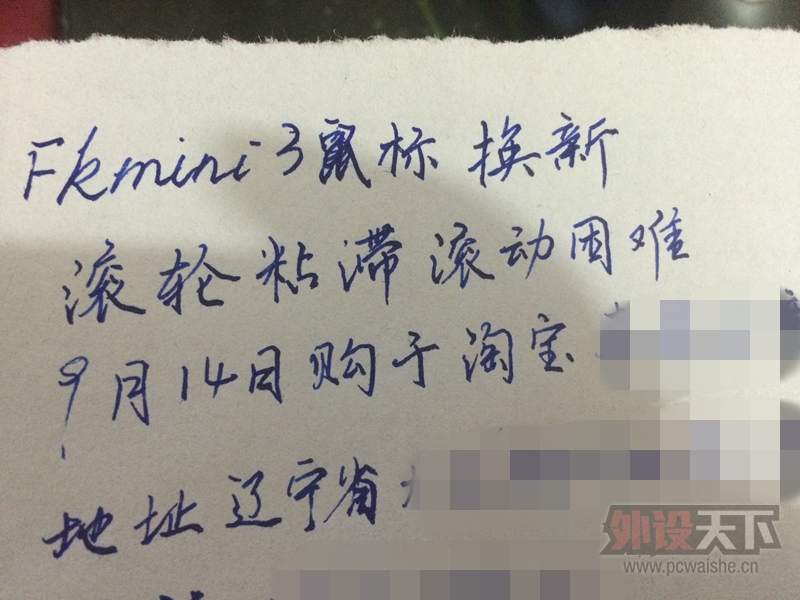 Fkmini 3鼠标换新
滚轮粘滞滚动困难
9月14日购于淘宝
地址辽宁省
外设天下
www.pcwaishe.cn